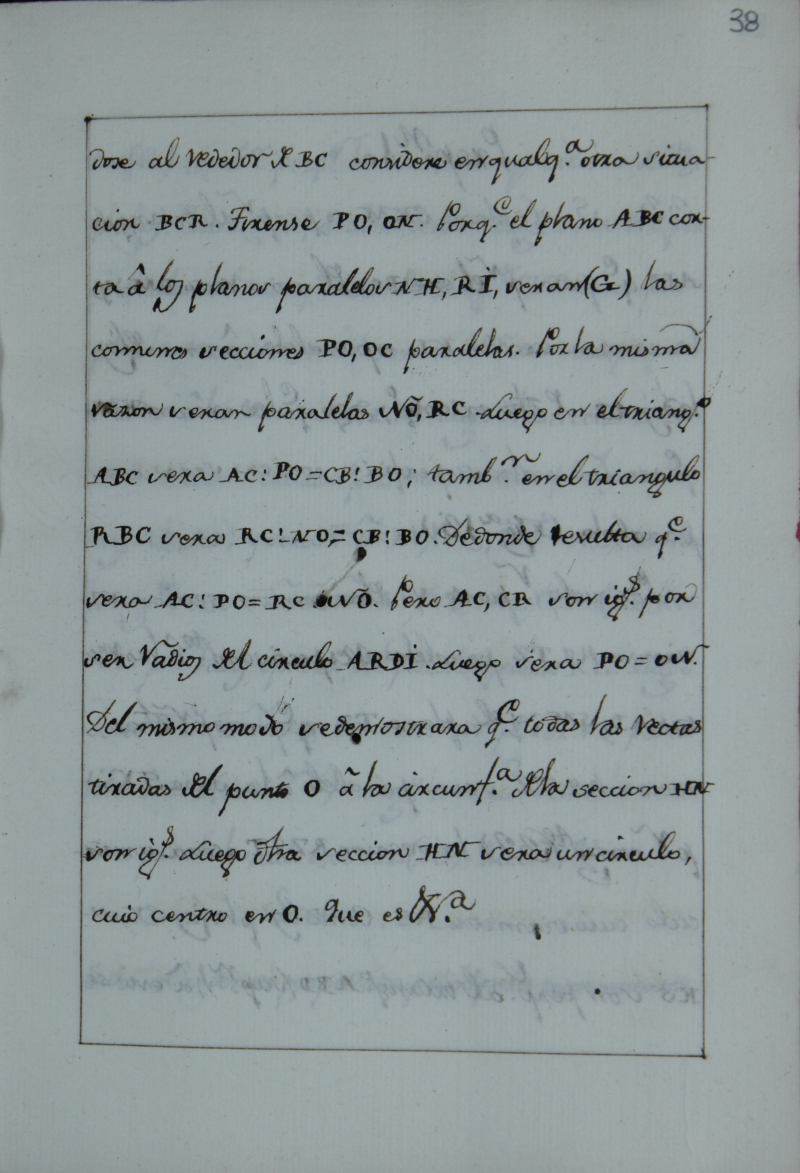 38
dose al rededor del BC considere en qualq.ª otra situa-
cion BCR. Tirense PO, ON. Porq.e el plano ABC cor-
ta â los planos paralelos NH, RI, seran (G) las
comunes secciones PO, OC paralelas. Por la misma
razon seran paralelas NO, RC. Luego en el triang.o
ABC sera AC : PO = CB : BO; tamb.n en el triangulo
RBC sera RC : NO, = CB : BO. De donde resulta q.e
sera AC : PO = RC : NO. Pero AC, CR son ig.s por
ser radios del circulo ARDI. Luego sera PO = ON.
Del mismo modo se demostrara q.e todas las rectas
tiradas del punto O â la circunf.ª de la seccion HN
son ig.s Luego dha seccion HN sera un circulo,
cuio centro en O. Que es